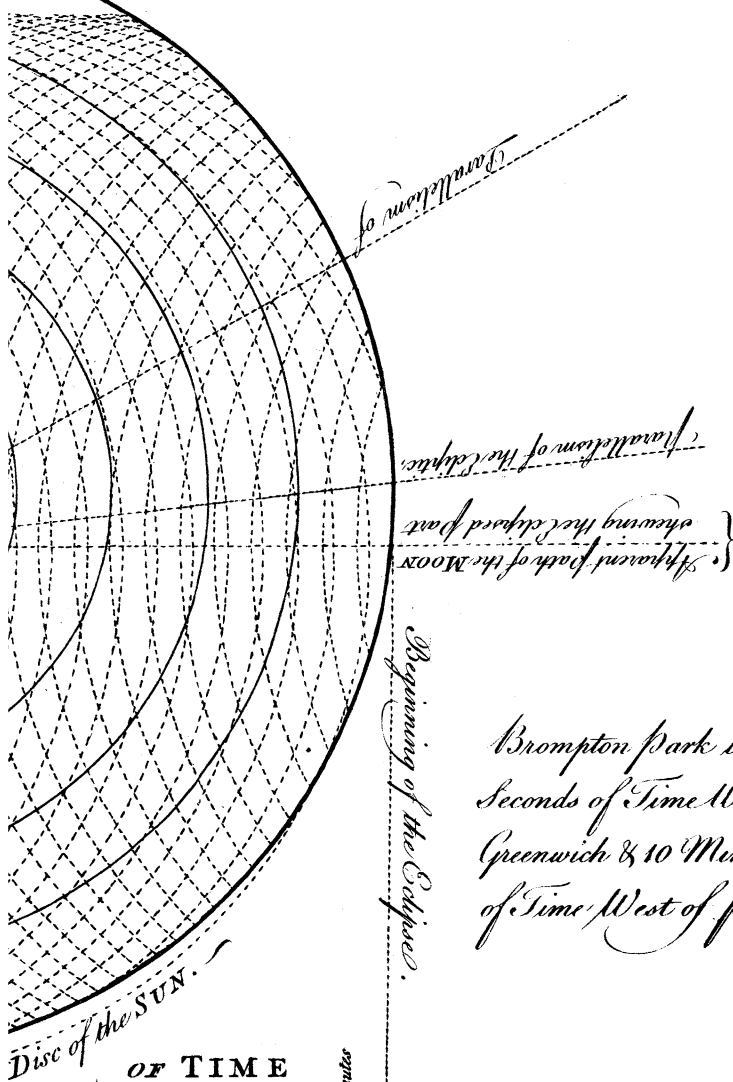 Parallelism of
Parallelism of the Ecliptic.
Apparent path of the MOON
shewing the Eclipsed part
Beginning of the Eclipse.
Brompton Park
Seconds of Time
Greenwich & 10
of Time West of
Disc of the SUN.
OF TIME